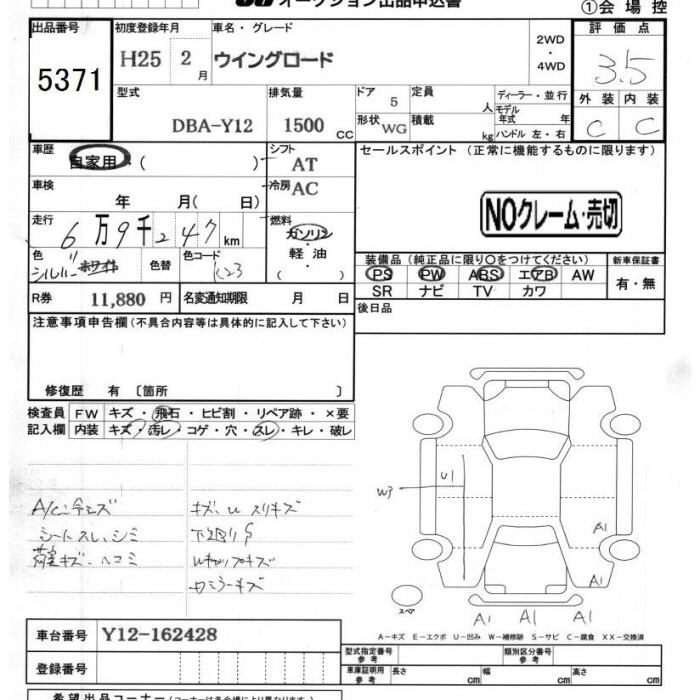 オークション出品申込書
①会場控
出品番号
5371
初度登録年月
H25 2月
車名・グレード
ウイングロード
2WD
・
4WD
評価点
3.5
型式
DBA-Y12
排気量
1500 CC
ドア 5
形状 WG
定員 人
積載 kg
ディーラー・並行
モデル年式 年
ハンドル 左・右
外装 内装
C C
車歴
自家用・( )
シフト
AT
セールスポイント (正常に機能するものに限ります)
NOクレーム・売切
車検
年 月( 日)
冷房
AC
走行
6万9千247km
燃料
ガソリン
・
軽油
( )
色
シルバー ホワイト
色替
色コード
K23
装備品(純正品に限り○をつけてください)
PS PW ABS エアB AW
SR ナビ TV カワ
新車保証書
有・無
R券 11,880 円
名変通知期限 月 日
後日品
注意事項申告欄(不具合内容等は具体的に記入して下さい)
修復歴 有 〔箇所 〕
検査員記入欄
FW キズ・飛石・ヒビ割・リペア跡・×要
内装 キズ・汚レ・コゲ・穴・スレ・キレ・破レ
A/C冷エズ
シートスレ、シミ
荷室キズ・ヘコミ
キズ、U スリキズ
下廻りS
Uキャップキズ
カミラーキズ
W3
U1
A1
A1
A1 A1 A1
スペア
A-キズ E-エクボ U-凹み W-補修跡 S-サビ C-腐食 XX-交換済
車台番号 Y12-162428
登録番号
型式指定番号 参考
類別区分番号 参考
車庫証明用 参考
長さ cm 幅 cm 高さ cm
希望出品コーナー